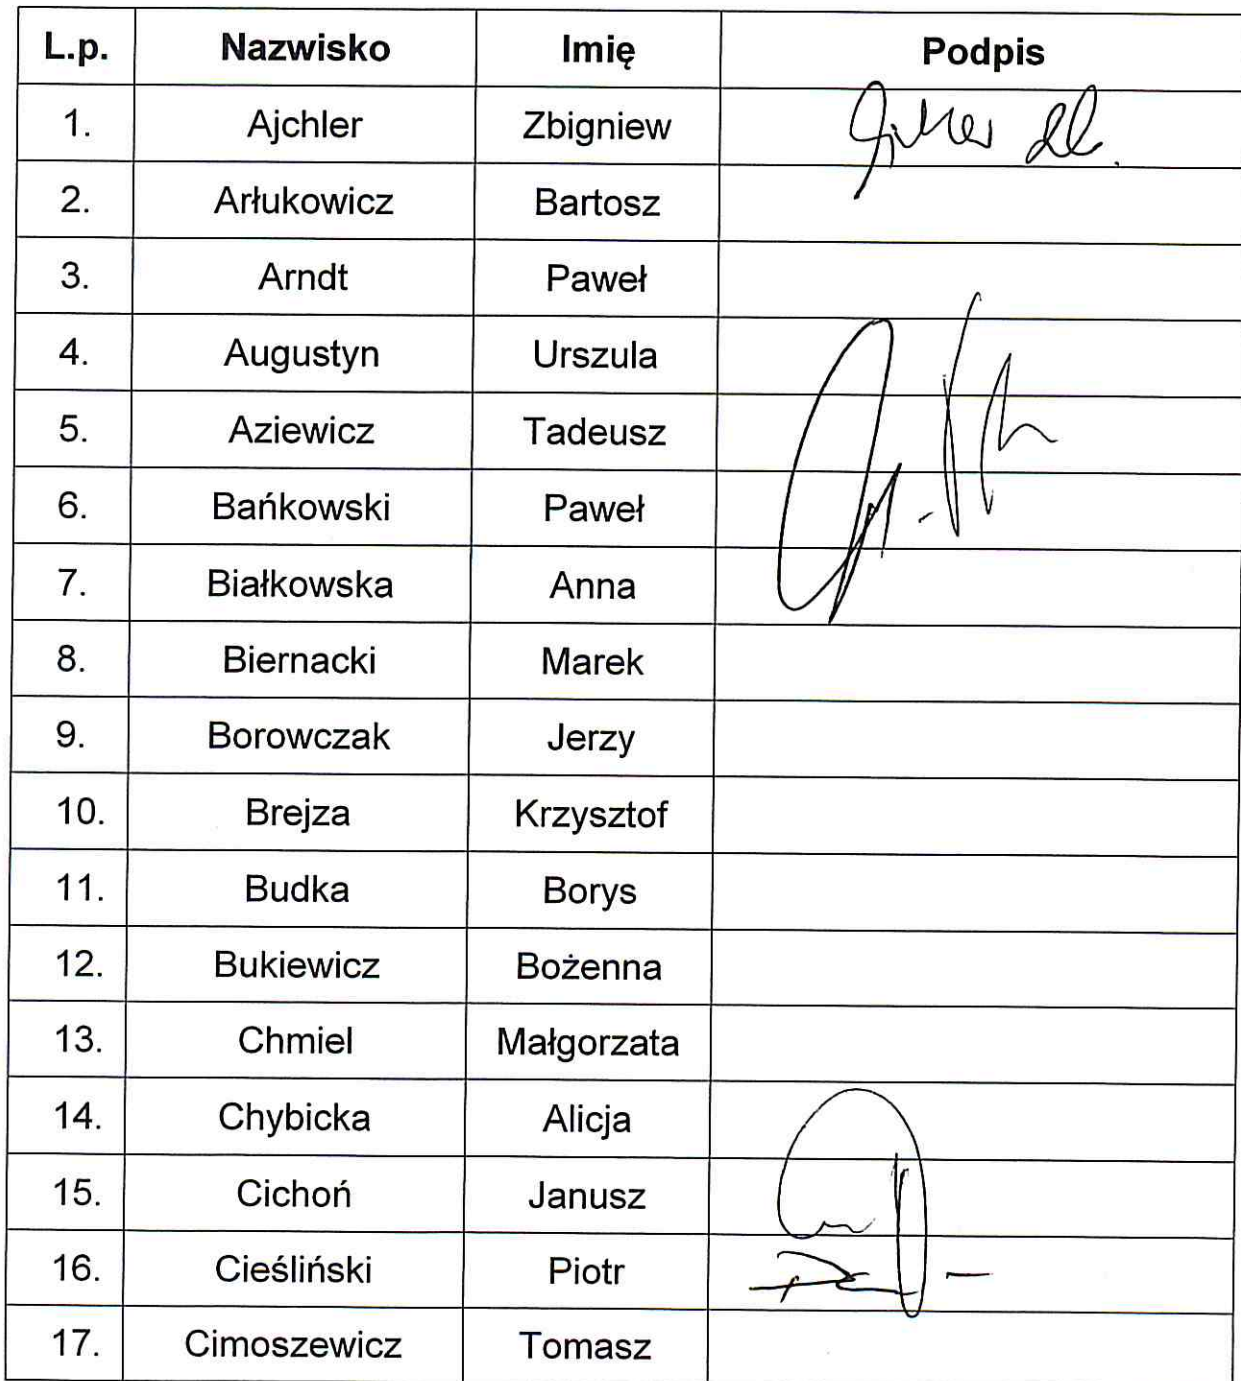 L.p. Nazwisko Imię Podpis
1. Ajchler Zbigniew
2. Arłukowicz Bartosz
3. Arndt Paweł
4. Augustyn Urszula
5. Aziewicz Tadeusz
6. Bańkowski Paweł
7. Białkowska Anna
8. Biernacki Marek
9. Borowczak Jerzy
10. Brejza Krzysztof
11. Budka Borys
12. Bukiewicz Bożenna
13. Chmiel Małgorzata
14. Chybicka Alicja
15. Cichoń Janusz
16. Cieśliński Piotr
17. Cimoszewicz Tomasz